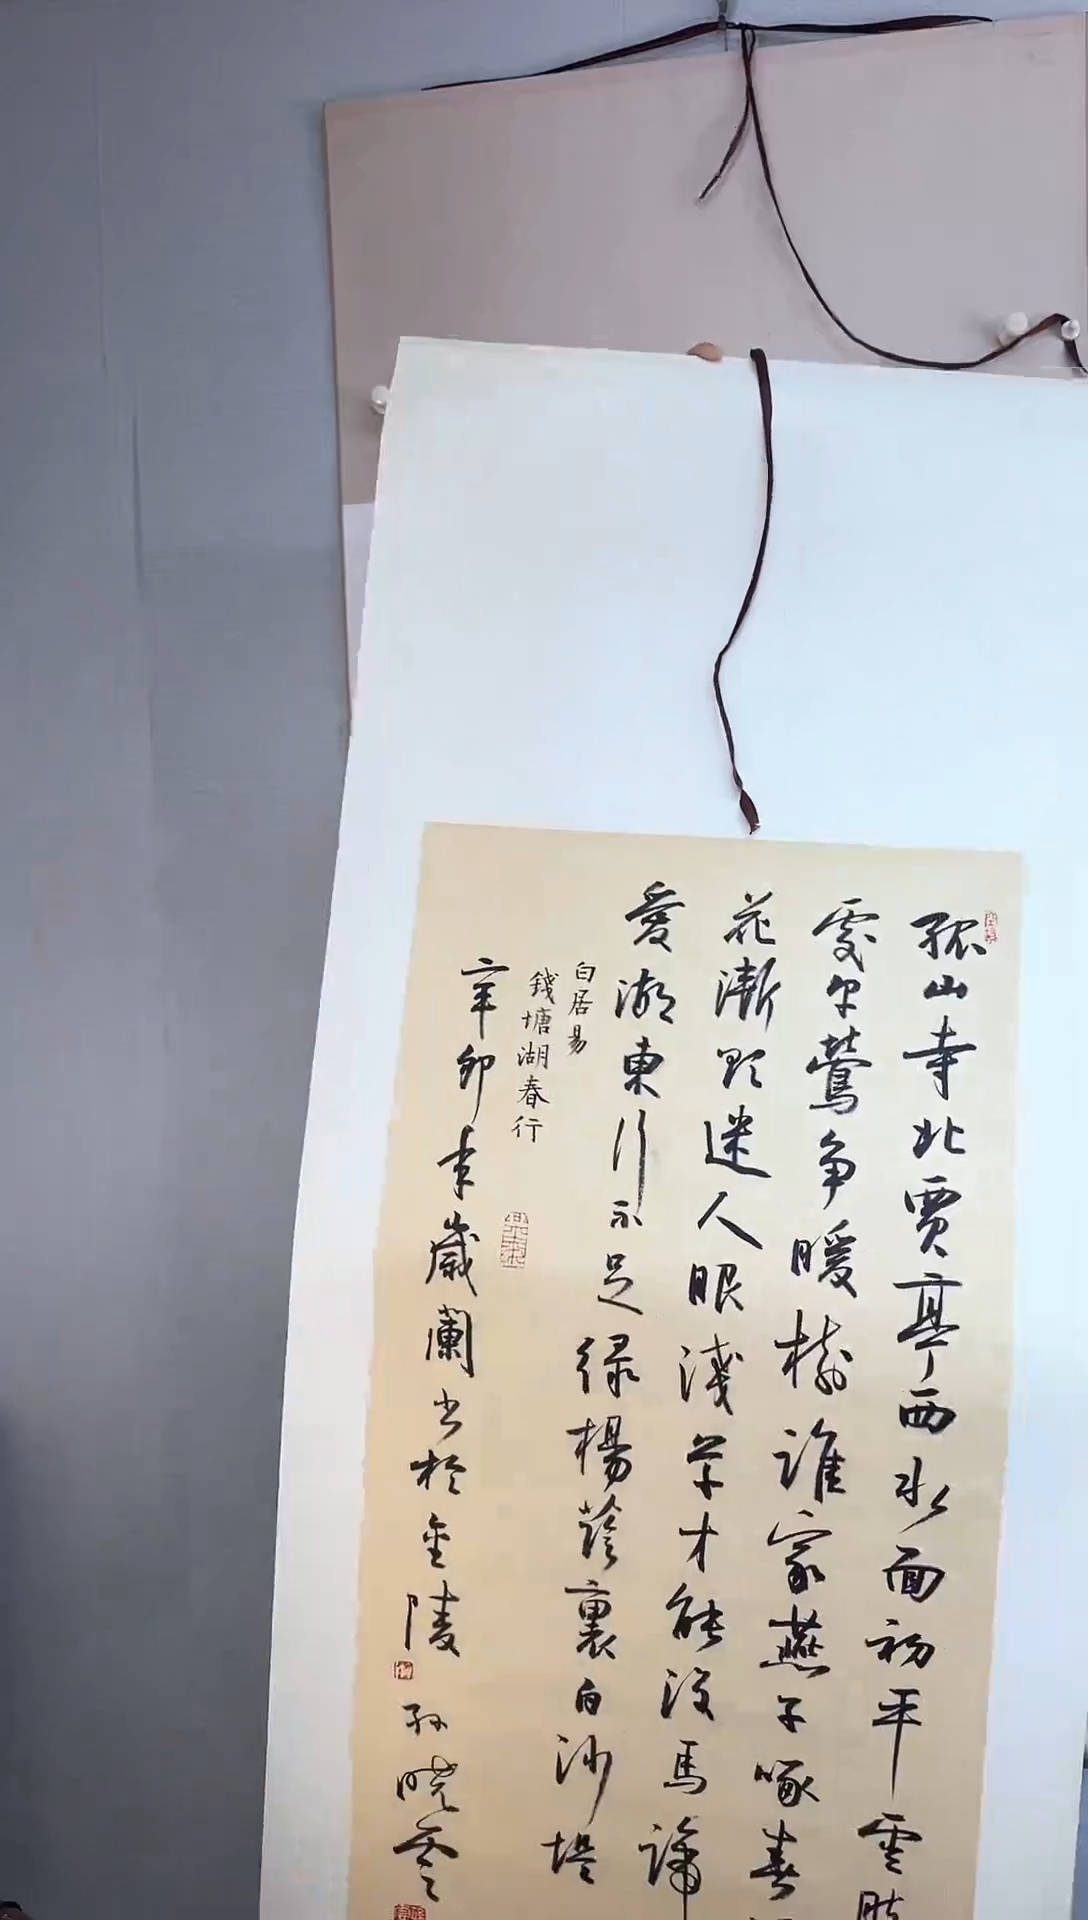 孤山寺北賈亭西水面初平雲
處早鶯争暖樹誰家燕子啄春
花漸欲迷人眼淺草才能没馬蹄
愛湖東行不足緑楊蔭裏白沙堤
白居易
錢塘湖春行
辛卯年歲闌书於金陵孫曉雲